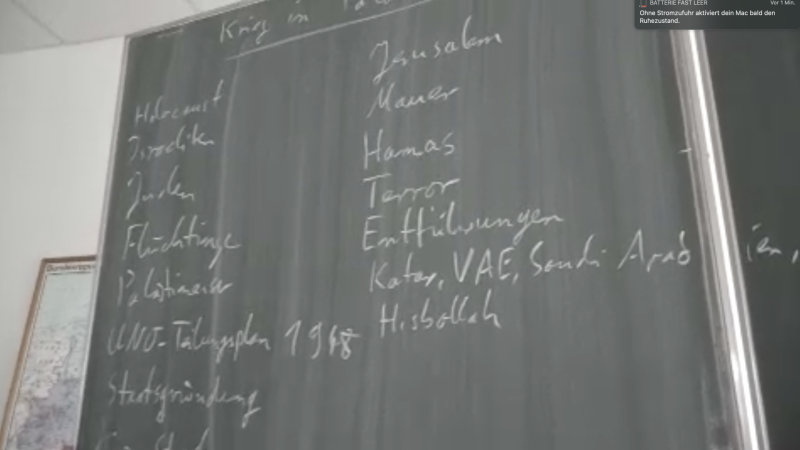 BATTERIE FAST LEER Vor 1 Min.
Ohne Stromzufuhr aktiviert dein Mac bald den
Ruhezustand.
Krieg in
Holocaust
Israeliten
Juden
Flüchtinge
Palästinenser
UNO-Teilungsplan 1948
Staatsgründung
Jerusalem
Mauer
Hamas
Terror
Entführungen
Katar, VAE, Saudi Arabien,
Hisbollah
Bundesrepu